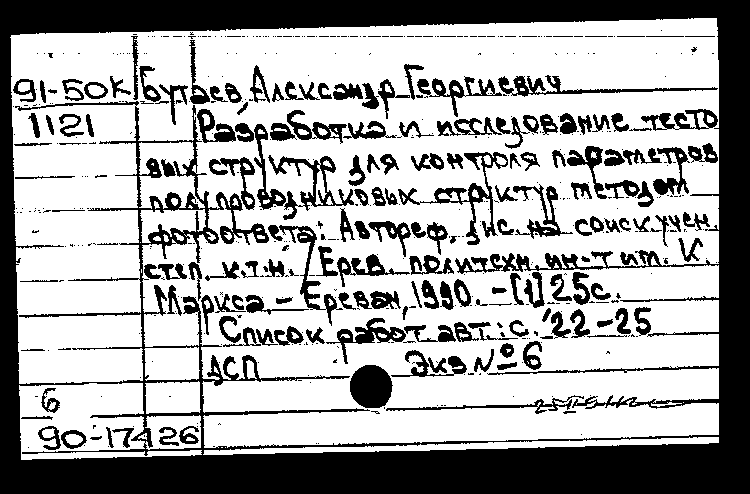 91-50К Бутаев, Александр Георгиевич
1121 Разработка и исследование тесто
вых структур для контроля параметров
полупроводниковых структур методом
фотоответа: Автореф. дис. на соиск. учен.
степ. к.т.н. / Ерев. политехн. ин-т им. К.
Маркса. - Ереван, 1990. - [1] 25с.
Список работ авт.: с. 22-25
ДСП Экз № 6
6
90-17426